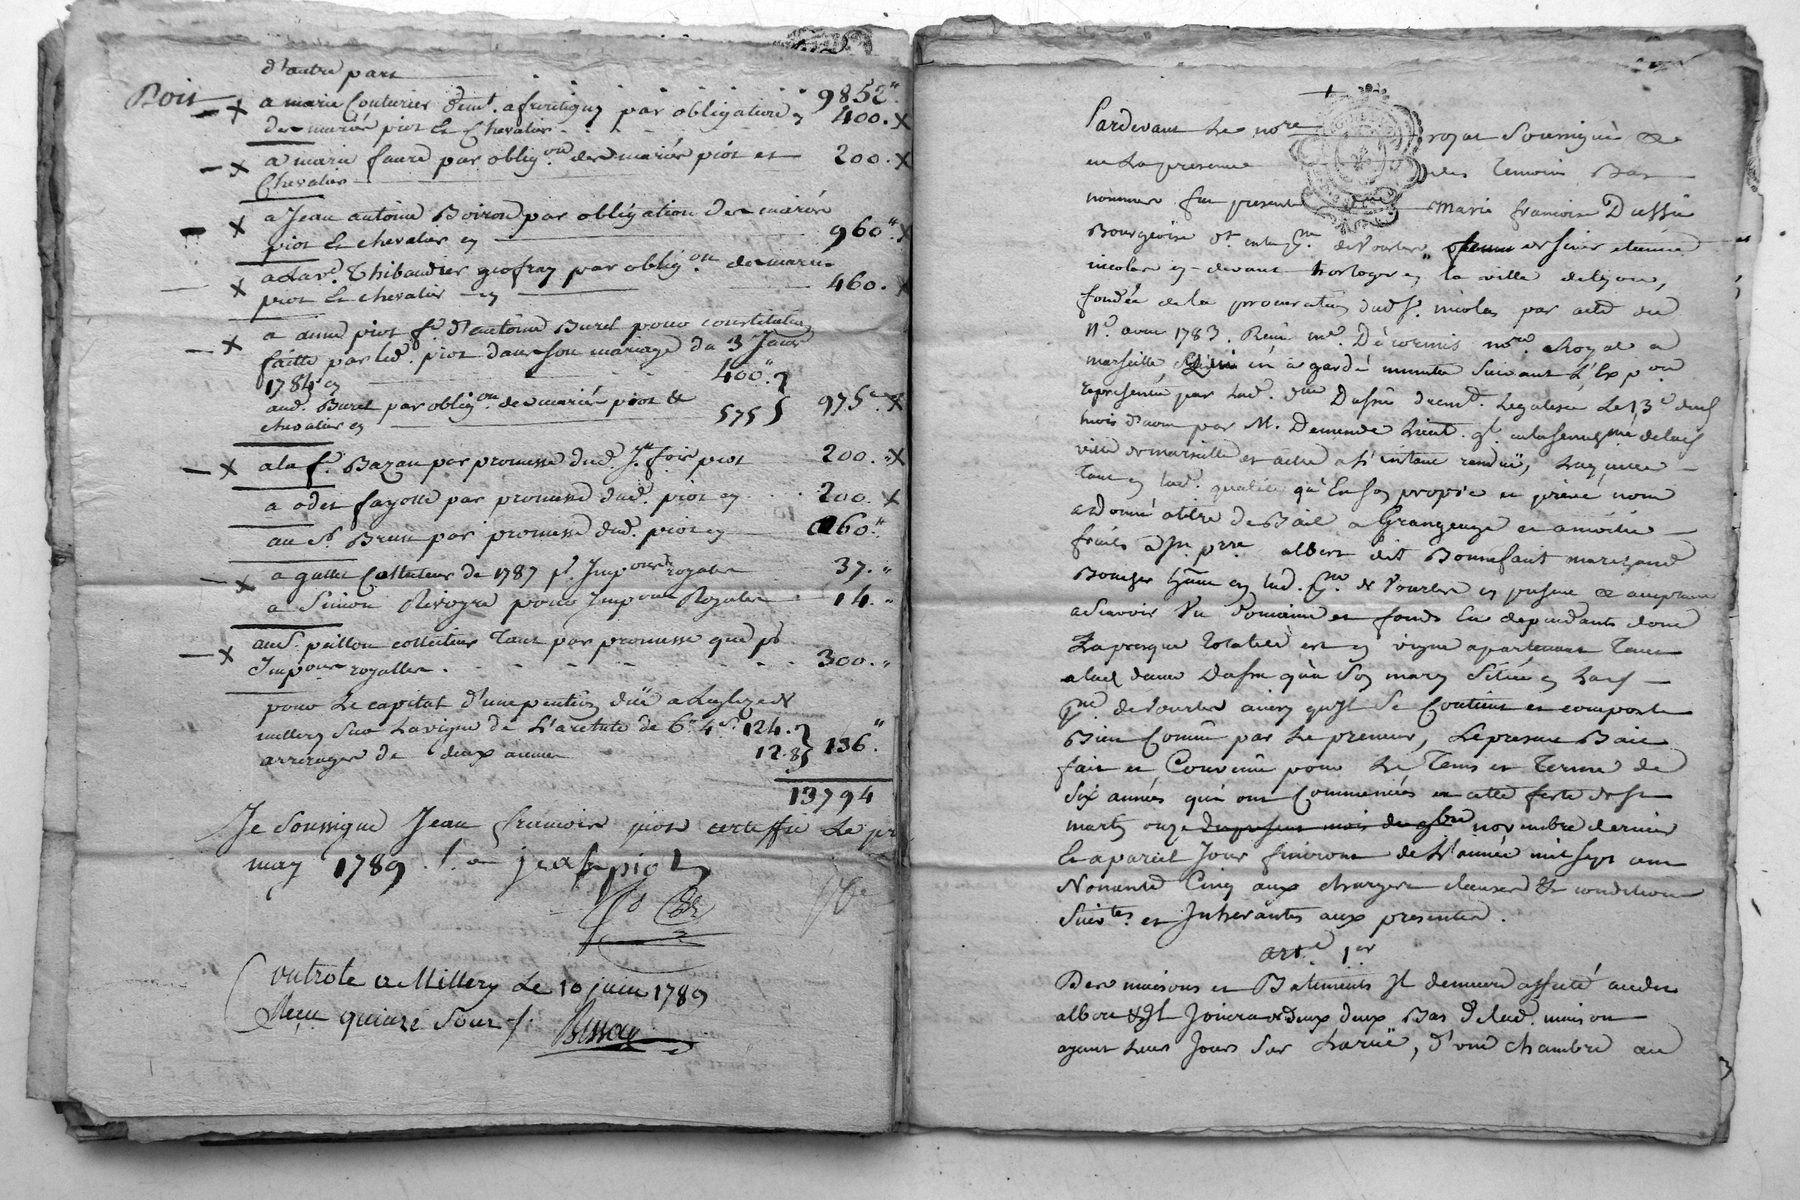 d'autre part
Doit
9852"
a marie Couturier par obligation
des mariés piot et Chevalier 400.
a marie faure par oblig.on des mariés piot et
Chevalier 200.
a Jean antoine Boiron par obligation des mariés
piot et chevalier en 960"
Thibaudier par oblig.on des mariés
piot et chevalier en 460.
a anne piot f.e d'antoine Buret pour constitution
faitte par led. piot dans son mariage du 3 Janv.
1784 en 400"
aud. Buret par oblig.on des mariés piot et
chevalier en 575 975
a la f.e Bazan par promesse dud. piot 200.
a odet fayolle par promesse dud. piot en 200.
au S. Brun par promesse dud. piot en 60"
a gallet Collecteur de 1787 p.r Imp.ons royales 37."
a Simon Rivoyre pour Imp.ons Royales 14."
au S. pillon collecteur tant par promesse que pr
Imp.ons royalles 300."
pour Le capital d'une pention düe a
millery sur La vigne de 6" 4s 124.
arrerages de deux années 12.8 136."
13794
Je soussigné Jean francois piot certiffie Le pr
may 1789 j f piot
Controle a Millery Le 10 juin 1789
Reçu quinze sous
Pardevant Le no.re royal soussigné &
en La presence des Temoins Bas
nommes fut presente marie francoise
Bourgeoise de Vourles femme de sieur etienne
nicolas horloger en la ville de Lyon,
fondée de la procuration dud. S.r nicolas par acte du
11.e avril 1783. Recu m.e no.re Royal a
marseille qui en a gardé minutte Suivant L'Exp.on
representée par lad. d.e Legalisée Le 13.e dud
mois d'avril par M. Demende Lieut. g.l
ville de marseille et a elle a L'instant rendüe, Laquelle
Tant en lad. qualité qu'En son propre et privé nom
a donné a titre de Bail a Grangeage et a moitié
fruits a S.r p.rre albert dit Bonnefait marchand
Boucher en lad. p.sse de Vourles
a scavoir Un domaine et fonds En dependants dont
La presque totalité est en vigne apartenant Tant
a lad. dame qu'a Son mary Située en lad.
p.sse de Vourles ainsy qu'Il Se Contient et comporte
Bien Connu par Le preneur, Le present Bail
fait et Convenu pour Le Tems et Terme de
Six années qui ont Commencées en cette feste de St
martin onze du present mois de 9bre novembre dernier
Et a pareil Jour finiront de L'année mil sept cent
Nonante Cinq aux charges clauses & conditions
Suiv.tes et Inherantes aux presentes.
art.e 1.er
Des maisons et Batiments Il demeure affecté audit
albert & Il Jouira des deux Bas de lad. maison
ayant Leurs Jours Sur La rüe, d'une chambre au